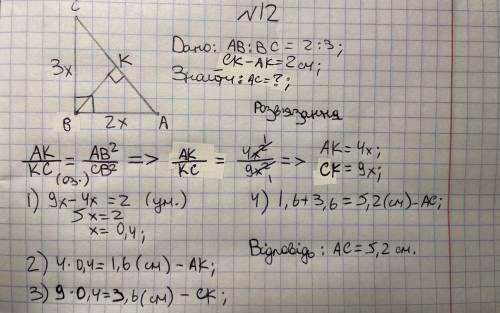 №12
C
K
3x
B
2x
A
Дано: AB:BC = 2:3;
CK-AK=2см;
Знайти: AC=?;
Розв'язання
AK/KC = AB²/CB² => AK/KC = 4x²/9x² => AK=4x;
1
1
CK=9x;
(оз.)
1) 9x-4x=2 (ум.)
5x=2
x=0,4;
2) 4·0,4=1,6(см)-AK;
3) 9·0,4=3,6(см)-CK;
4) 1,6+3,6=5,2(см)-AC;
Відповідь: AC=5,2 см.